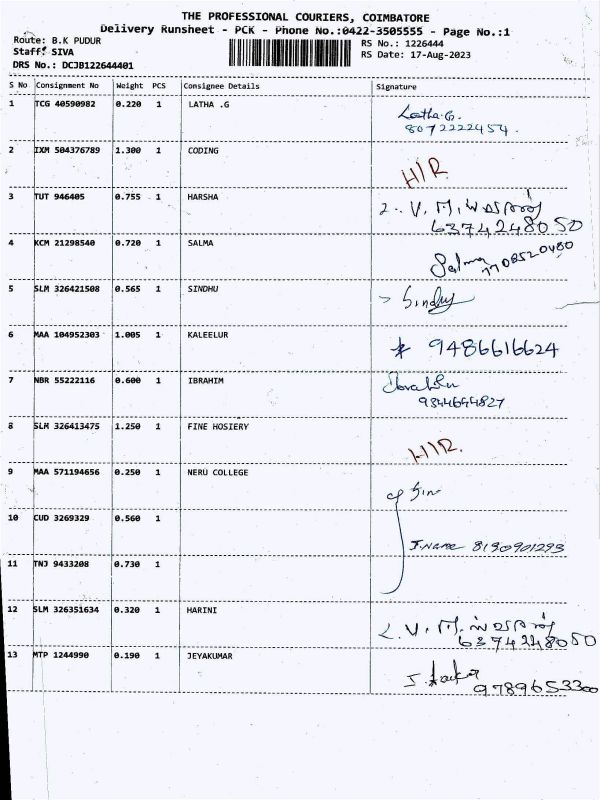 THE PROFESSIONAL COURIERS, COIMBATORE
Delivery Runsheet - PCK - Phone No.:0422-3505555 - Page No.:1
Route: B.K PUDUR
Staff: SIVA
DRS No.: DCJB122644401
RS No.: 1226444
RS Date: 17-Aug-2023
S No Consignment No Weight PCS Consignee Details Signature
1 TCG 40590982 0.220 1 LATHA .G Latha.G.
8072222454.
2 IXM 504376789 1.300 1 CODING H/R
3 TUT 946405 0.755 1 HARSHA
6374248050
4 KCM 21298540 0.720 1 SALMA Salma
7708520480
5 SLM 326421508 0.565 1 SINDHU Sindhu
6 MAA 104952303 1.005 1 KALEELUR 9486616624
7 NBR 55222116 0.600 1 IBRAHIM Ibrahim
9344644827
8 SLM 326413475 1.250 1 FINE HOSIERY H/R.
9 MAA 571194656 0.250 1 NERU COLLEGE
10 CUD 3269329 0.560 1 8190901293
11 TNJ 9433208 0.730 1
12 SLM 326351634 0.320 1 HARINI
6374248050
13 MTP 1244990 0.190 1 JEYAKUMAR
9789653300